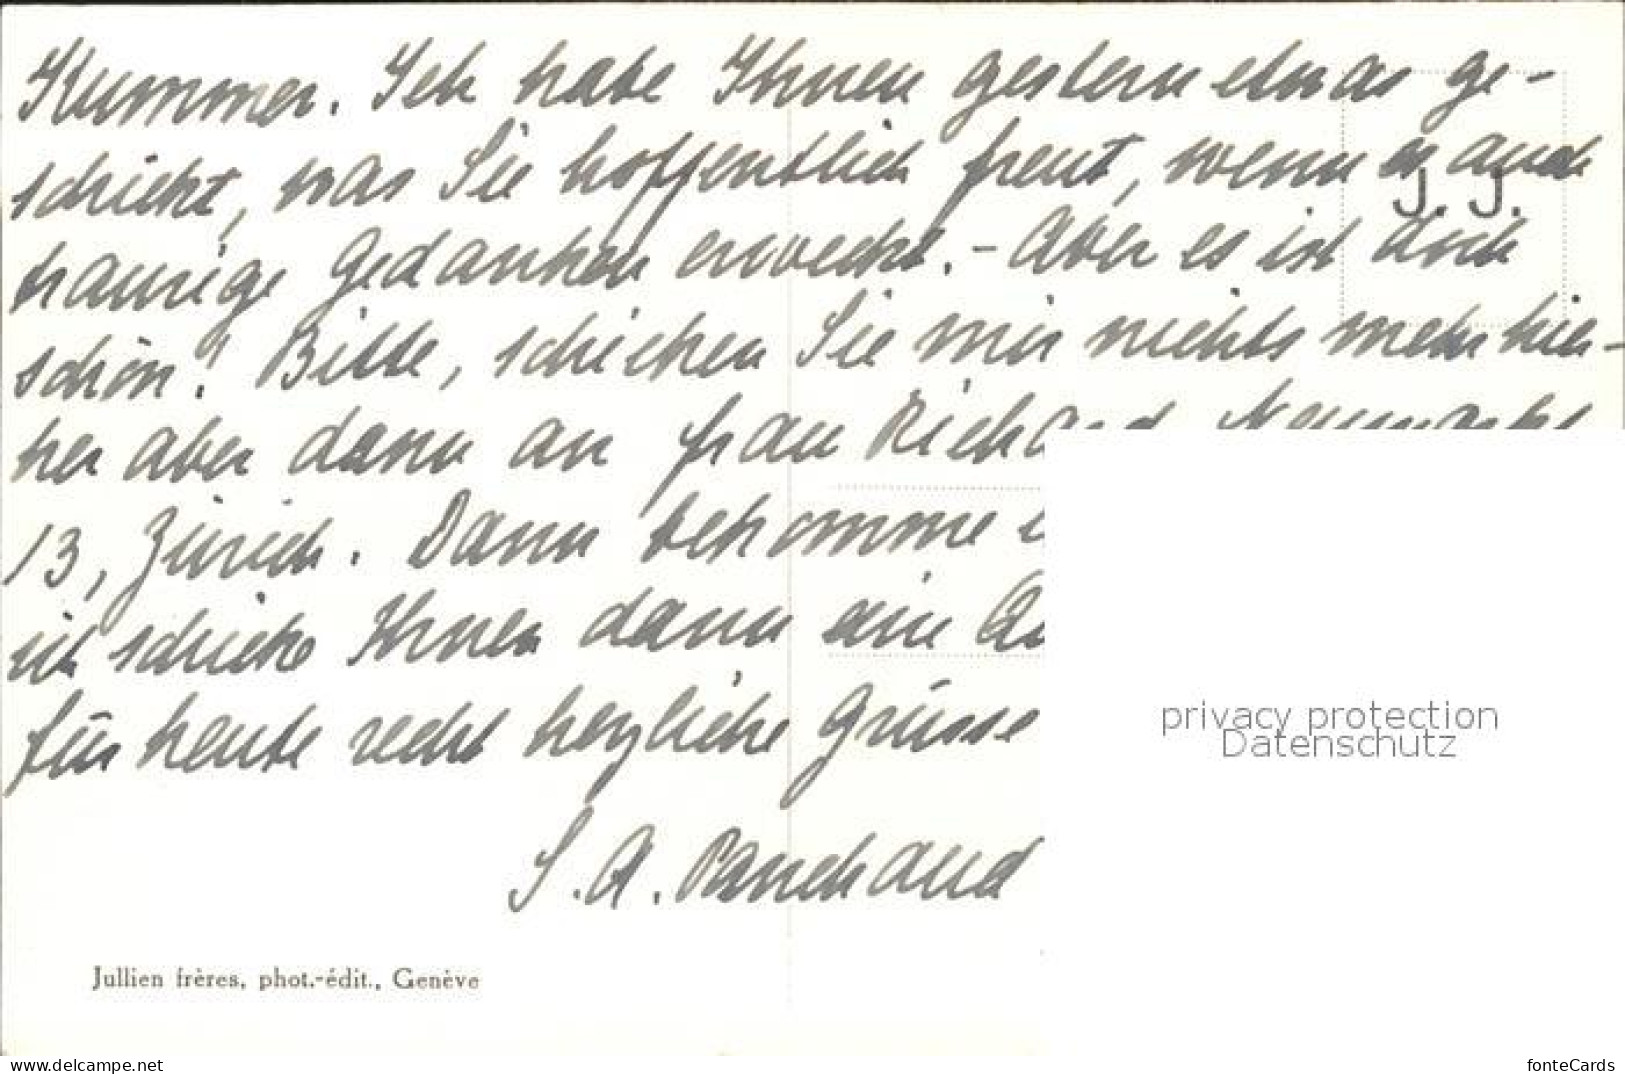 Kummer. Ich habe Ihnen gestern etwas ge-
schickt, was Sie hoffentlich freut, wenn es auch
J. J.
traurige Gedanken erweckt. - Aber es ist doch
schön! Bitte, schicken Sie mir nichts mehr hier-
her aber dann an Frau Richard
13, Zürich. Dann bekomme
ich schicke Ihnen dann eine
für heute recht herzliche Grüsse
S. A. Panchaud
Jullien frères, phot.-édit., Genève
privacy protection
Datenschutz
www.delcampe.net
fonteCards